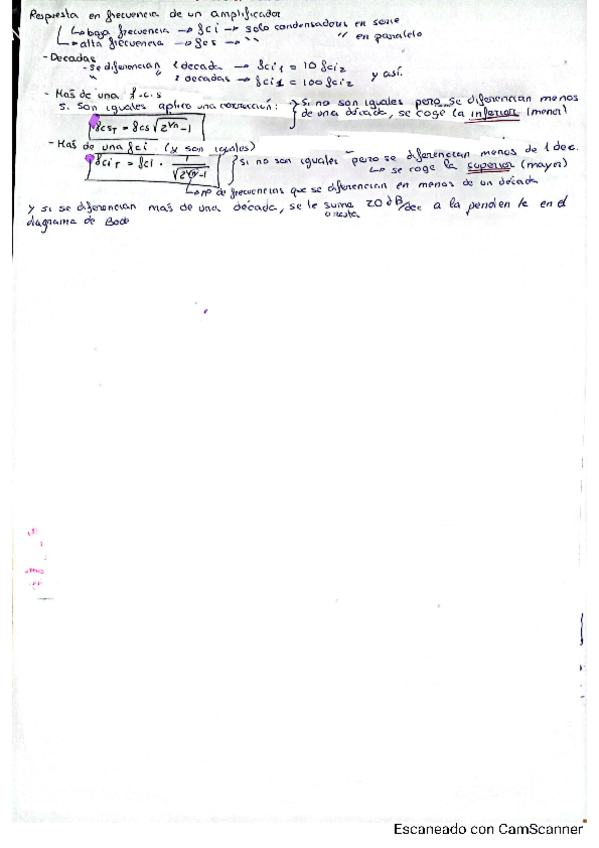 Respuesta en frecuencia de un amplificador
↳ baja frecuencia → fci → solo condensadores en serie
↳ alta frecuencia → fcs → " " en paralelo
- Decadas
- Se diferencian 1 decada → fci1 = 10 fci2
" " 2 decadas → fci1 = 100 fci2 y así.
- Mas de una f.c.s
Si son iguales aplico una corrección: → Si no son iguales pero se diferencian menos de una década, se coge la inferior (menor)
fcsT = fcs √(2^(1/n) - 1)
- Mas de una fci (si son iguales)
fciT = fci · 1/√(2^(1/n) - 1)
Si no son iguales pero se diferencian menos de 1 dec.
↳ se coge la superior (mayor)
↳ nº de frecuencias que se diferencian en menos de un década
Y si se diferencian más de una década, se le suma 20 dB/dec a la pendiente en el
o resta
diagrama de Bode
Escaneado con CamScanner